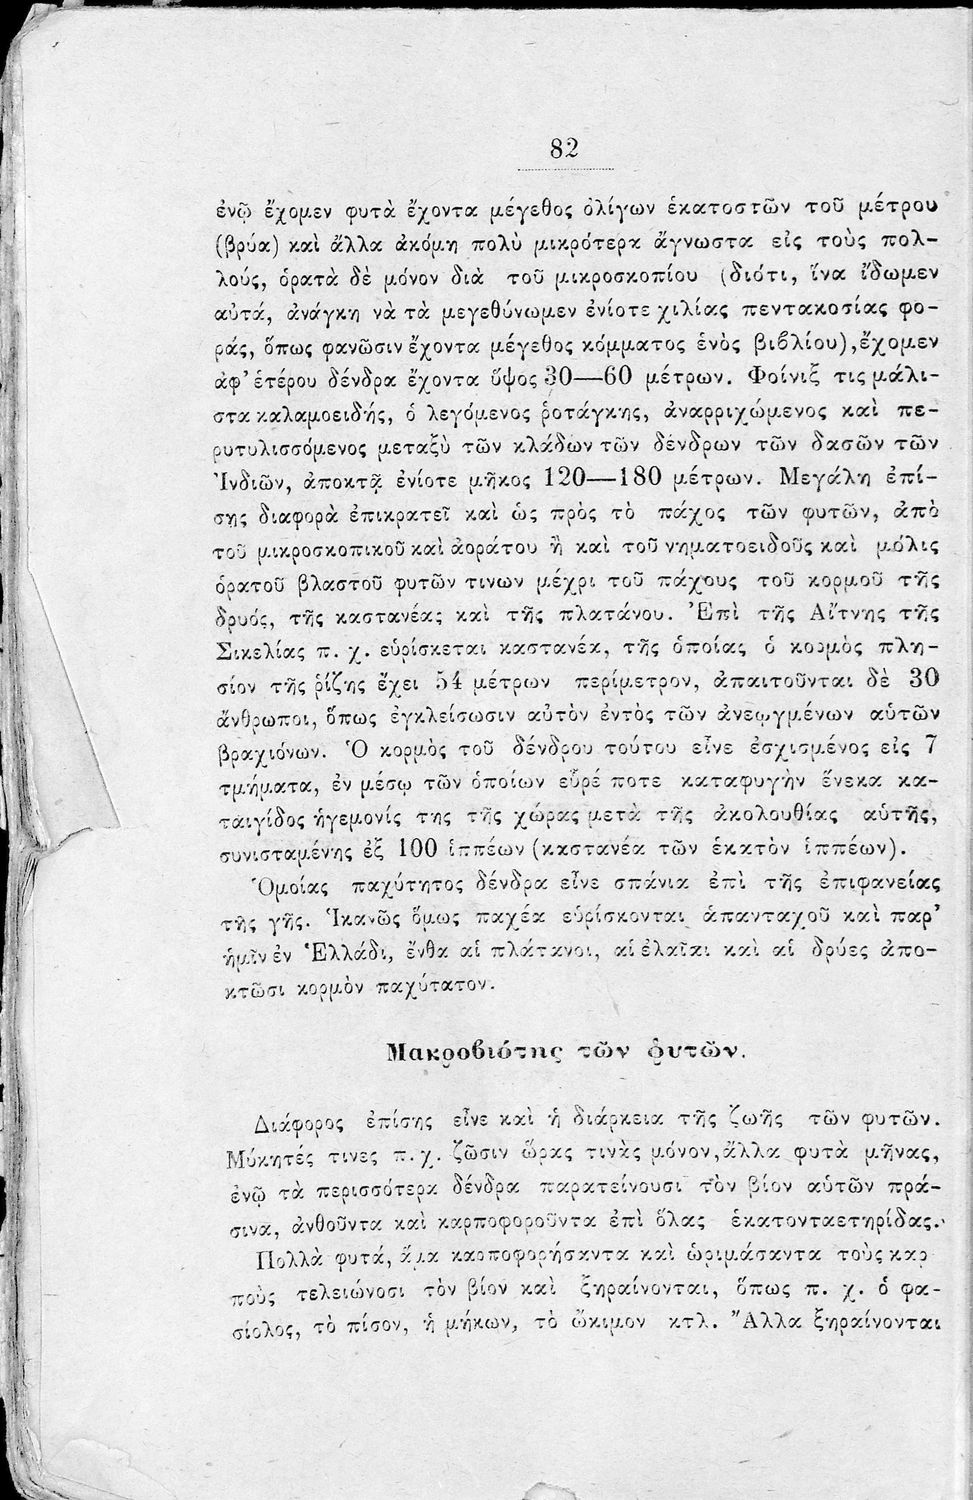 82
ἐνῷ ἔχομεν φυτὰ ἔχοντα μέγεθος ὀλίγων ἑκατοστῶν τοῦ μέτρου
(βρύα) καὶ ἄλλα ἀκόμη πολὺ μικρότερα ἄγνωστα εἰς τοὺς πολ-
λούς, ὁρατὰ δὲ μόνον διὰ τοῦ μικροσκοπίου (διότι, ἵνα ἴδωμεν
αὐτά, ἀνάγκη νὰ τὰ μεγεθύνωμεν ἐνίοτε χιλίας πεντακοσίας φο-
ράς, ὅπως φανῶσιν ἔχοντα μέγεθος κόμματος ἑνὸς βιβλίου), ἔχομεν
ἀφ' ἑτέρου δένδρα ἔχοντα ὕψος 30—60 μέτρων. Φοίνιξ τις μάλι-
στα καλαμοειδής, ὁ λεγόμενος ῥοτάγκης, ἀναρριχώμενος καὶ πε-
ρυτυλισσόμενος μεταξὺ τῶν κλάδων τῶν δένδρων τῶν δασῶν τῶν
Ἰνδιῶν, ἀποκτᾷ ἐνίοτε μῆκος 120—180 μέτρων. Μεγάλη ἐπί-
σης διαφορὰ ἐπικρατεῖ καὶ ὡς πρὸς τὸ πάχος τῶν φυτῶν, ἀπὸ
τοῦ μικροσκοπικοῦ καὶ ἀοράτου ἢ καὶ τοῦ νηματοειδοῦς καὶ μόλις
ὁρατοῦ βλαστοῦ φυτῶν τινων μέχρι τοῦ πάχους τοῦ κορμοῦ τῆς
δρυός, τῆς καστανέας καὶ τῆς πλατάνου. Ἐπὶ τῆς Αἴτνης τῆς
Σικελίας π. χ. εὑρίσκεται καστανέα, τῆς ὁποίας ὁ κορμὸς πλη-
σίον τῆς ῥίζης ἔχει 54 μέτρων περίμετρον, ἀπαιτοῦνται δὲ 30
ἄνθρωποι, ὅπως ἐγκλείσωσιν αὐτὸν ἐντὸς τῶν ἀνεῳγμένων αὑτῶν
βραχιόνων. Ὁ κορμὸς τοῦ δένδρου τούτου εἶνε ἐσχισμένος εἰς 7
τμήματα, ἐν μέσῳ τῶν ὁποίων εὗρέ ποτε καταφυγὴν ἕνεκα κα-
ταιγίδος ἡγεμονίς της τῆς χώρας μετὰ τῆς ἀκολουθίας αὑτῆς,
συνισταμένης ἐξ 100 ἱππέων (καστανέα τῶν ἑκατὸν ἱππέων).
Ὁμοίας παχύτητος δένδρα εἶνε σπάνια ἐπὶ τῆς ἐπιφανείας
τῆς γῆς. Ἱκανῶς ὅμως παχέα εὑρίσκονται ἁπανταχοῦ καὶ παρ'
ἡμῖν ἐν Ἑλλάδι, ἔνθα αἱ πλάτανοι, αἱ ἐλαῖαι καὶ αἱ δρύες ἀπο-
κτῶσι κορμὸν παχύτατον.
Μακροβιότης τῶν φυτῶν.
Διάφορος ἐπίσης εἶνε καὶ ἡ διάρκεια τῆς ζωῆς τῶν φυτῶν.
Μύκητές τινες π. χ. ζῶσιν ὥρας τινὰς μόνον, ἄλλα φυτὰ μῆνας,
ἐνῷ τὰ περισσότερα δένδρα παρατείνουσι τὸν βίον αὑτῶν πρά-
σινα, ἀνθοῦντα καὶ καρποφοροῦντα ἐπὶ ὅλας ἑκατονταετηρίδας.
Πολλὰ φυτά, ἅμα καρποφορήσαντα καὶ ὡριμάσαντα τοὺς καρ
ποὺς τελειώνοσι τὸν βίον καὶ ξηραίνονται, ὅπως π. χ. ὁ φα-
σίολος, τὸ πίσον, ἡ μήκων, τὸ ὤκιμον κτλ. Ἄλλα ξηραίνονται